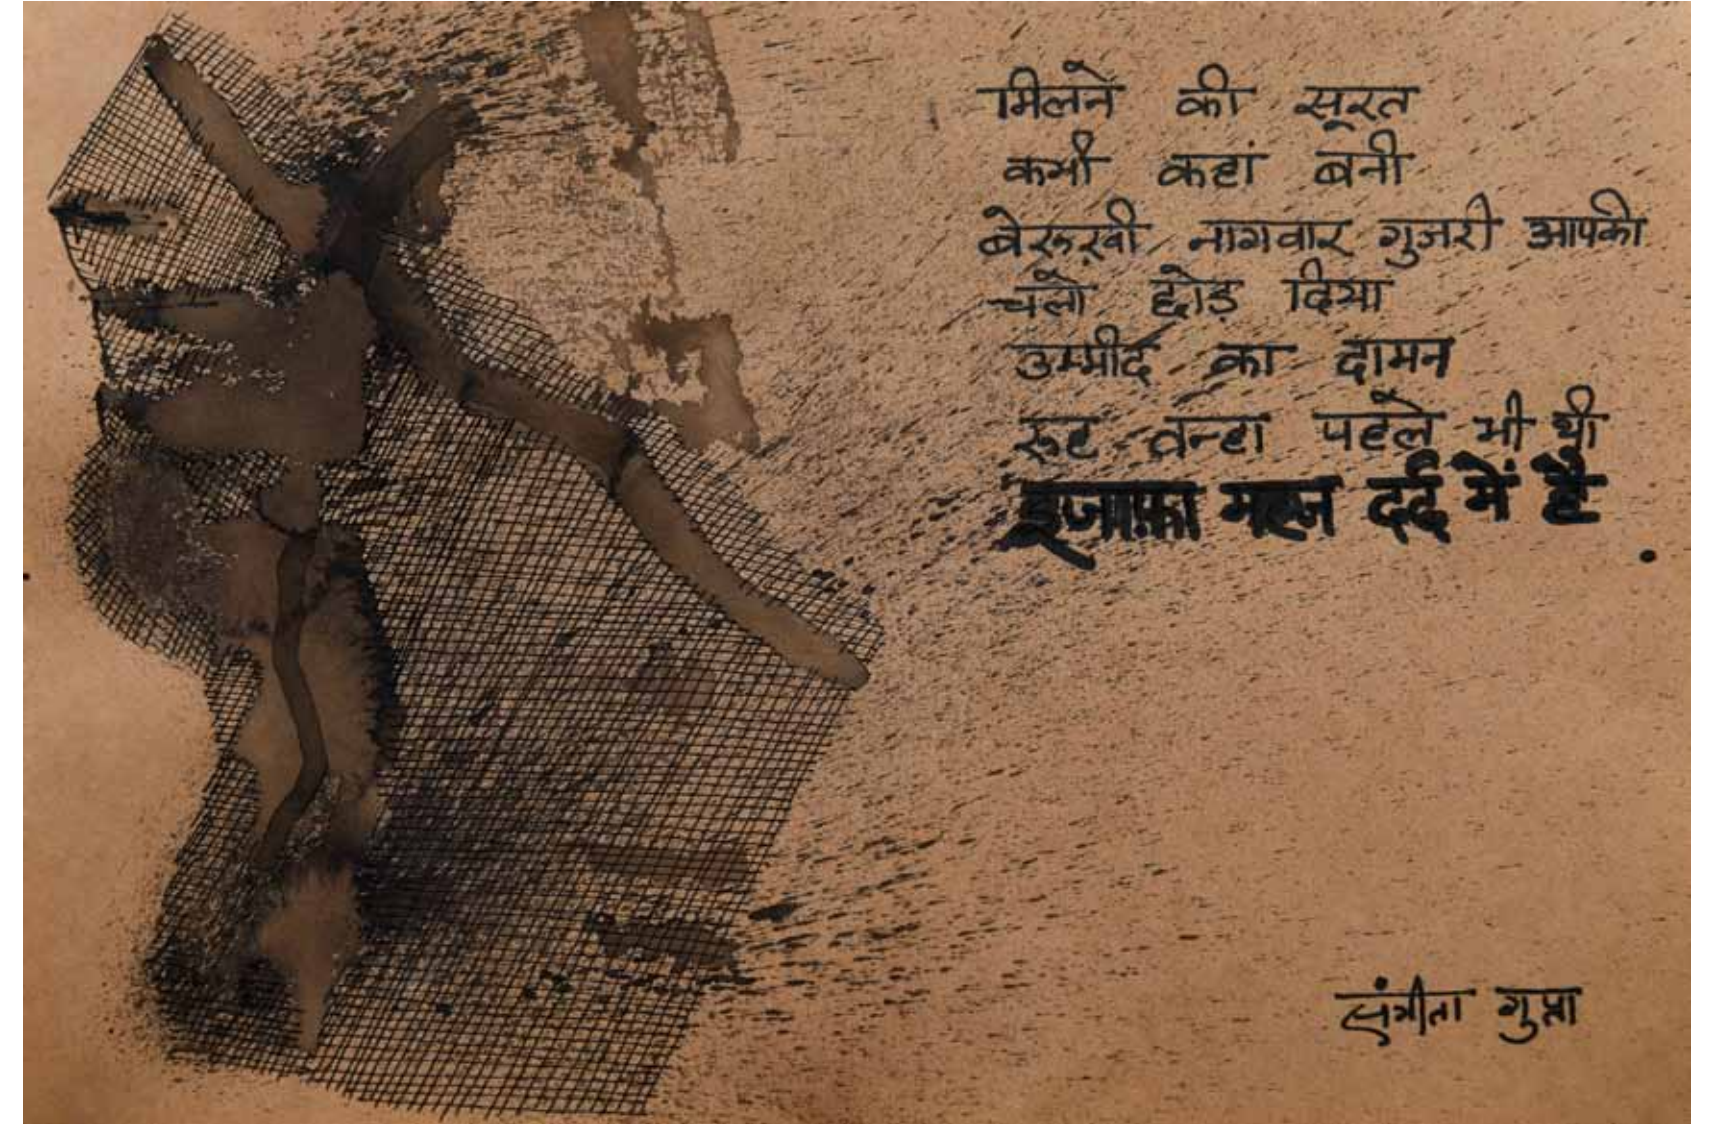 मिलने की सूरत
कभी कहां बनी
बेरूख़ी नागवार गुजरी आपकी
चलो छोड़ दिया
उम्मीद का दामन
रूह तन्हा पहले भी थी
इजाफ़ा महज दर्द में है
संगीता गुप्ता